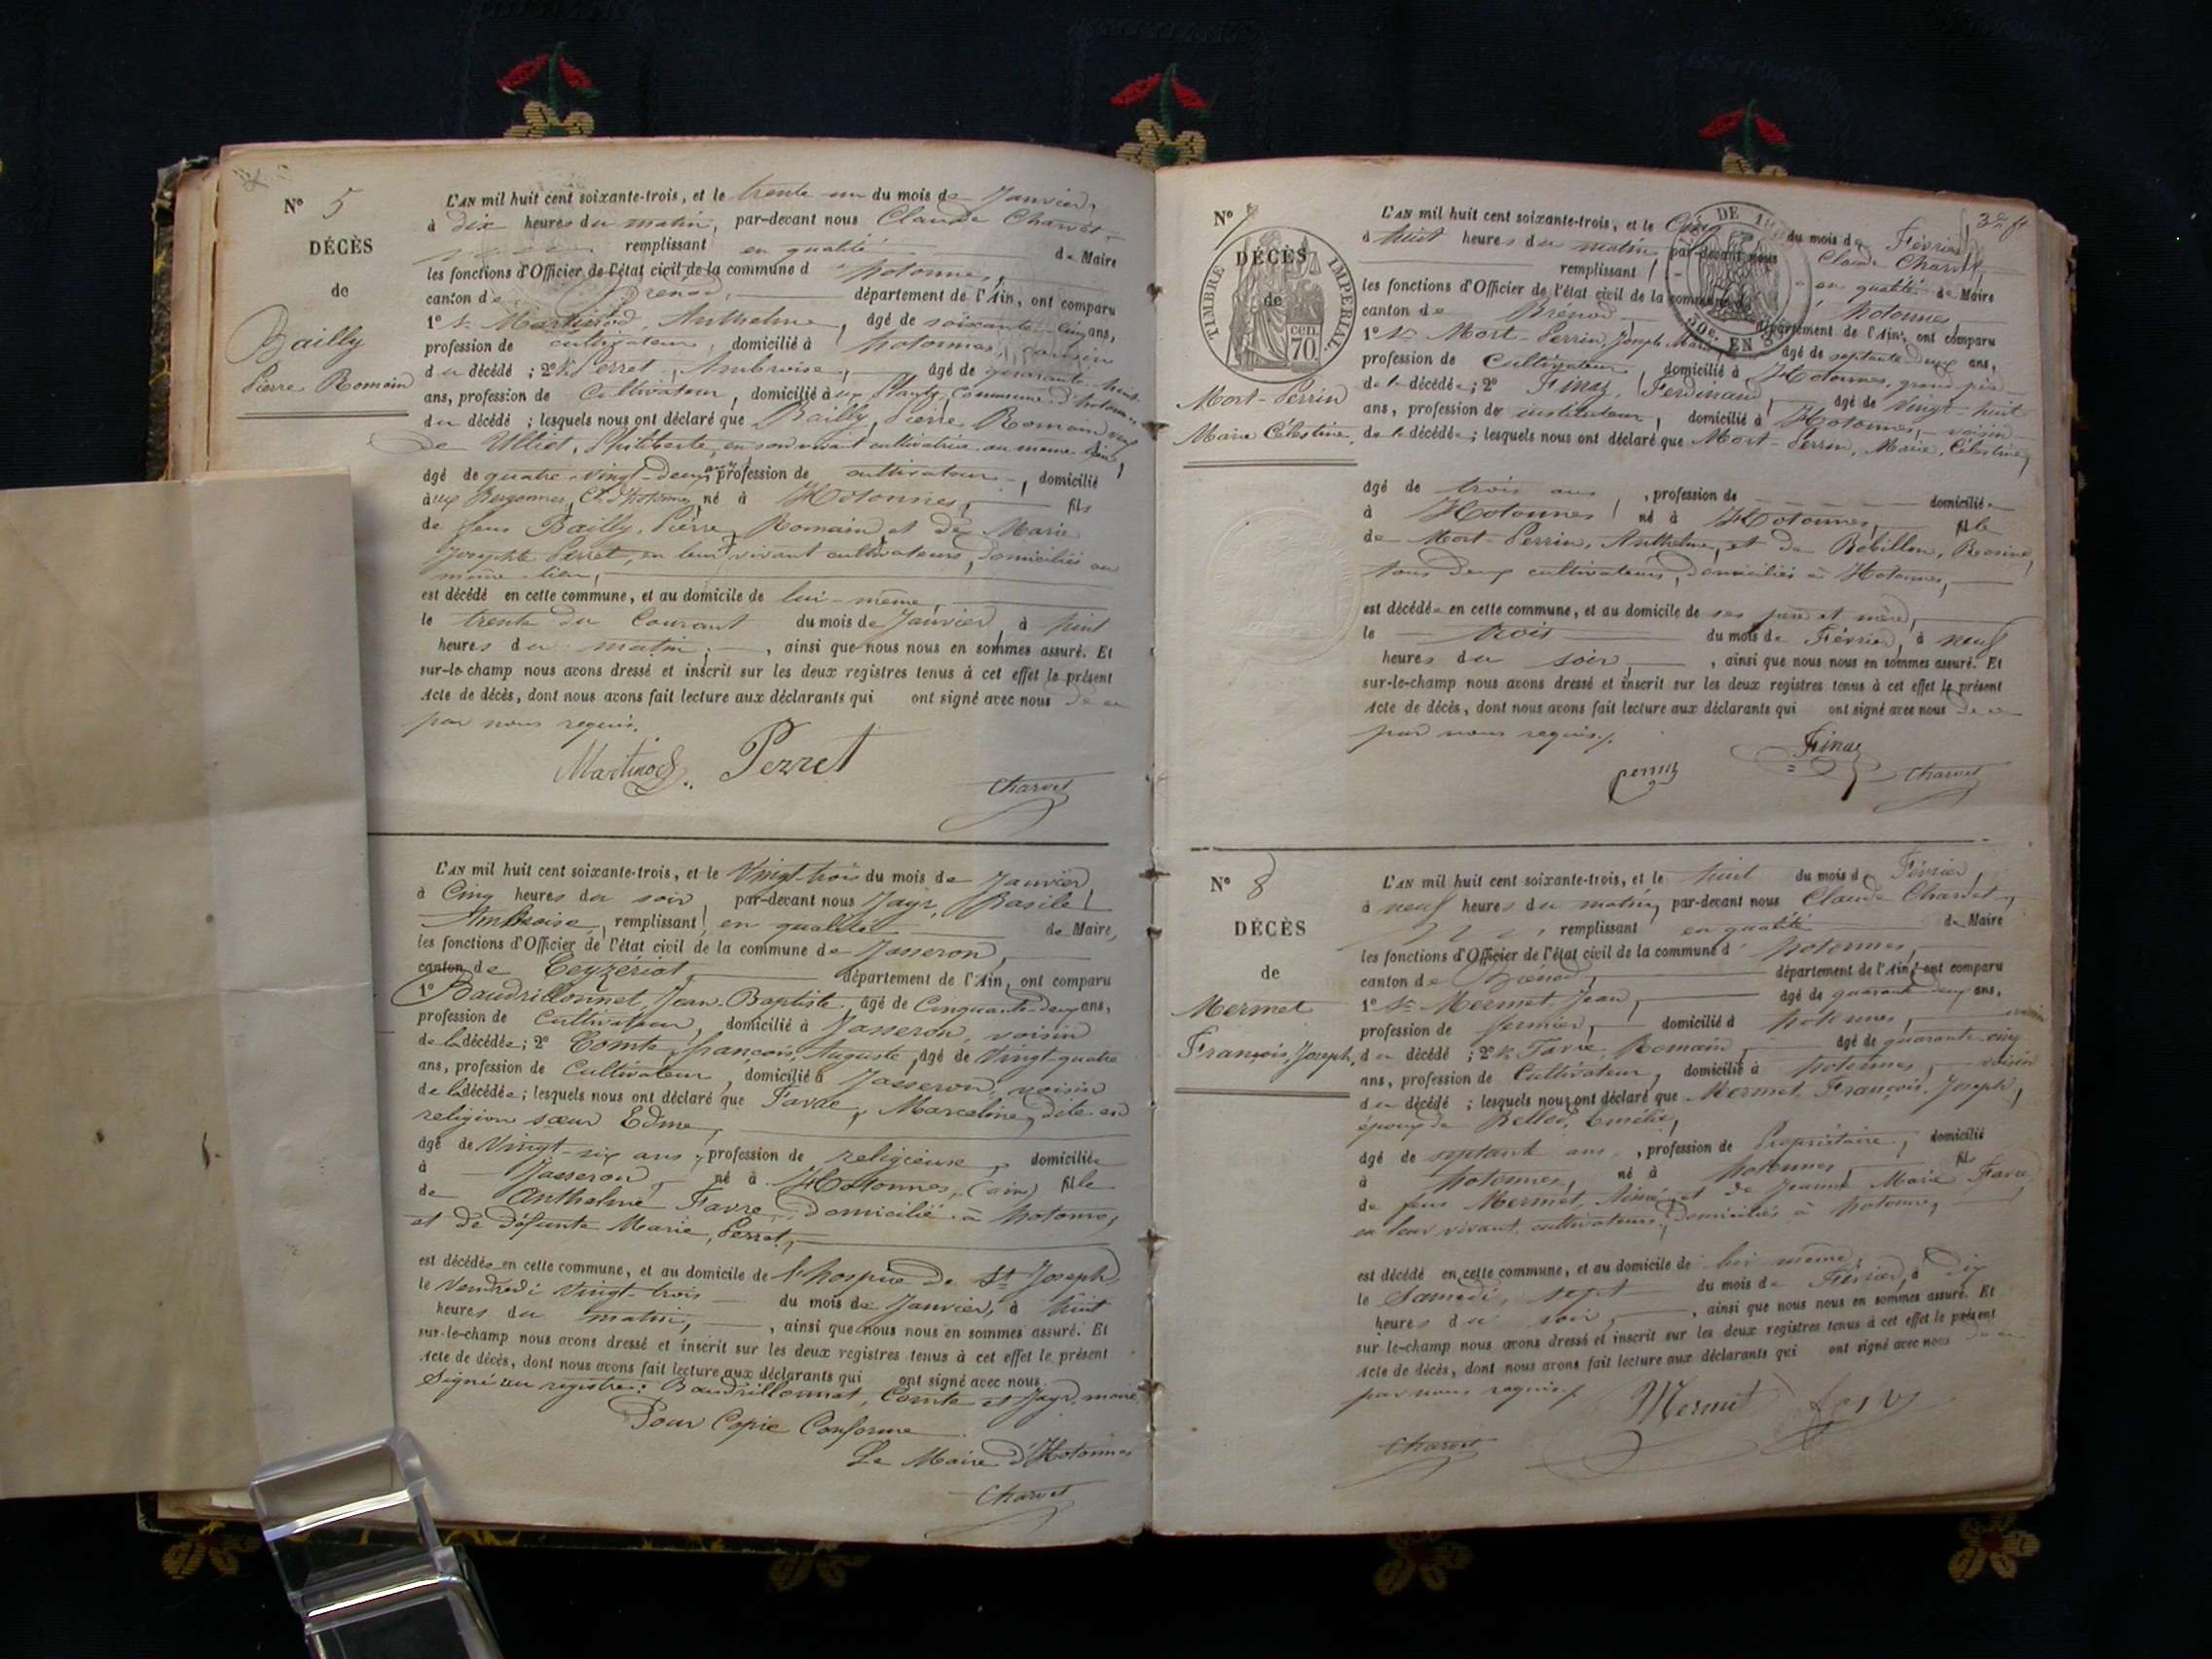 N° 5
DÉCÈS
de
Bailly
Pierre Romain
L'AN mil huit cent soixante-trois, et le trente un du mois de Janvier,
à dix heures du matin, par-devant nous Claude Charvet,
remplissant en qualité de Maire
les fonctions d'Officier de l'état civil de la commune d hotonnes,
canton de Brénod, département de l'Ain, ont comparu
1° Sr Martinod, Anthelme, âgé de soixante-cinq ans,
profession de cultivateur, domicilié à hotonnes, cousin
du décédé ; 2° Sr Perret, Ambroise, âgé de quarante-huit
ans, profession de Cultivateur, domicilié à ux Plantz, Commune d'hotonnes
du décédé ; lesquels nous ont déclaré que Bailly, Pierre Romain, veuf
de Philiberte, en son vivant cultivatrice au même lieu,
âgé de quatre-vingt-deux ans, profession de cultivateur, domicilié
à ux Bergonnes, Cne d'hotonnes, né à Hotonnes, fils
de feus Bailly, Pierre, Romain, et de Marie
Josephte Perret, en leur vivant cultivateurs, domiciliés au
même lieu,
est décédé en cette commune, et au domicile de lui-même,
le trente du Courant du mois de Janvier à huit
heures du matin, ainsi que nous nous en sommes assuré. Et
sur-le-champ nous avons dressé et inscrit sur les deux registres tenus à cet effet le présent
Acte de décès, dont nous avons fait lecture aux déclarants qui ont signé avec nous de ce
par nous requis.
Martinod Perret
Charvet
L'AN mil huit cent soixante-trois, et le Vingt-trois du mois de Janvier,
à Cinq heures du soir, par-devant nous Jayr, Basile
Ambroise, remplissant en qualité de Maire,
les fonctions d'Officier de l'état civil de la commune de Jasseron,
canton de Ceyzériat, département de l'Ain, ont comparu
1° Baudrillonnet, Jean-Baptiste, âgé de Cinquante-deux ans,
profession de Cultivateur, domicilié à Jasseron, voisin
de la décédée; 2° Comte, françois, Auguste, âgé de Vingt-quatre
ans, profession de Cultivateur, domicilié à Jasseron, voisin
de la décédée; lesquels nous ont déclaré que Favre, Marceline, dite en
religion sœur Edme,
âgé de Vingt-six ans, profession de religieuse, domiciliée
à Jasseron, né à Hotonnes, (ain) fille
de Anthelme Favre, domicilié à hotonnes,
et de défunte Marie, Perret,
est décédée en cette commune, et au domicile de l'hospice de St Joseph
le Vendredi Vingt-trois du mois de Janvier, à huit
heures du matin, ainsi que nous nous en sommes assuré. Et
sur-le-champ nous avons dressé et inscrit sur les deux registres tenus à cet effet le présent
Acte de décès, dont nous avons fait lecture aux déclarants qui ont signé avec nous.
Signé au registre: Baudrillonnet, Comte et Jayr, maire
Pour Copie Conforme
Le Maire d'Hotonnes
Charvet
N° 7
32 ft
TIMBRE IMPERIAL.
cen. 70.
DÉCÈS
de
Mort-Perrin
Marie Célestine,
L'AN mil huit cent soixante-trois, et le Cinq du mois de Février,
à huit heures du matin, par-devant nous Claude Charvet,
remplissant en qualité de Maire
les fonctions d'Officier de l'état civil de la commune d' hotonnes,
canton de Brénod département de l'Ain, ont comparu
1° Sr Mort-Perrin, Joseph-Marie, âgé de septante deux ans,
profession de Cultivateur, domicilié à Hotonnes, grand-père
de la décédée; 2° Finaz, Ferdinand, âgé de Vingt-huit
ans, profession de instituteur, domicilié à Hotonnes, voisin
de la décédée; lesquels nous ont déclaré que Mort-Perrin, Marie, Célestine,
âgé de trois ans, profession de domiciliée
à Hotonnes, né à Hotonnes, fille
de Mort-Perrin, Anthelme, et de Robillon, Rosine,
tous deux cultivateurs, domiciliés à Hotonnes,
est décédée en cette commune, et au domicile de ses père et mère,
le trois du mois de Février, à neuf
heures du soir, ainsi que nous nous en sommes assuré. Et
sur-le-champ nous avons dressé et inscrit sur les deux registres tenus à cet effet le présent
Acte de décès, dont nous avons fait lecture aux déclarants qui ont signé avec nous de ce
par nous requis.
Finaz
Charvet
N° 8
DÉCÈS
de
Mermet
François, Joseph,
L'AN mil huit cent soixante-trois, et le huit du mois de Février,
à neuf heures du matin, par-devant nous Claude Charvet,
remplissant en qualité de Maire
les fonctions d'Officier de l'état civil de la commune d' hotonnes,
canton de Brénod, département de l'Ain, ont comparu
1° Sr Mermet, Jean, âgé de quarante deux ans,
profession de fermier, domicilié à hotonnes, voisin
du décédé ; 2° Sr Favre, Romain, âgé de quarante-cinq
ans, profession de Cultivateur, domicilié à hotonnes, voisin
du décédé ; lesquels nous ont déclaré que Mermet, François, Joseph,
époux de Belled, Emélie,
âgé de septante ans, profession de Propriétaire, domicilié
à hotonnes, né à hotonnes, fils
de feus Mermet, Aimé, et de Jeanne Marie Favre,
en leur vivant cultivateurs, domiciliés à hotonnes,
est décédé en cette commune, et au domicile de lui même,
le Samedi, sept du mois de Février, à dix
heures du soir, ainsi que nous nous en sommes assuré. Et
sur-le-champ nous avons dressé et inscrit sur les deux registres tenus à cet effet le présent
Acte de décès, dont nous avons fait lecture aux déclarants qui ont signé avec nous de ce
par nous requis.
Mermet
Charvet